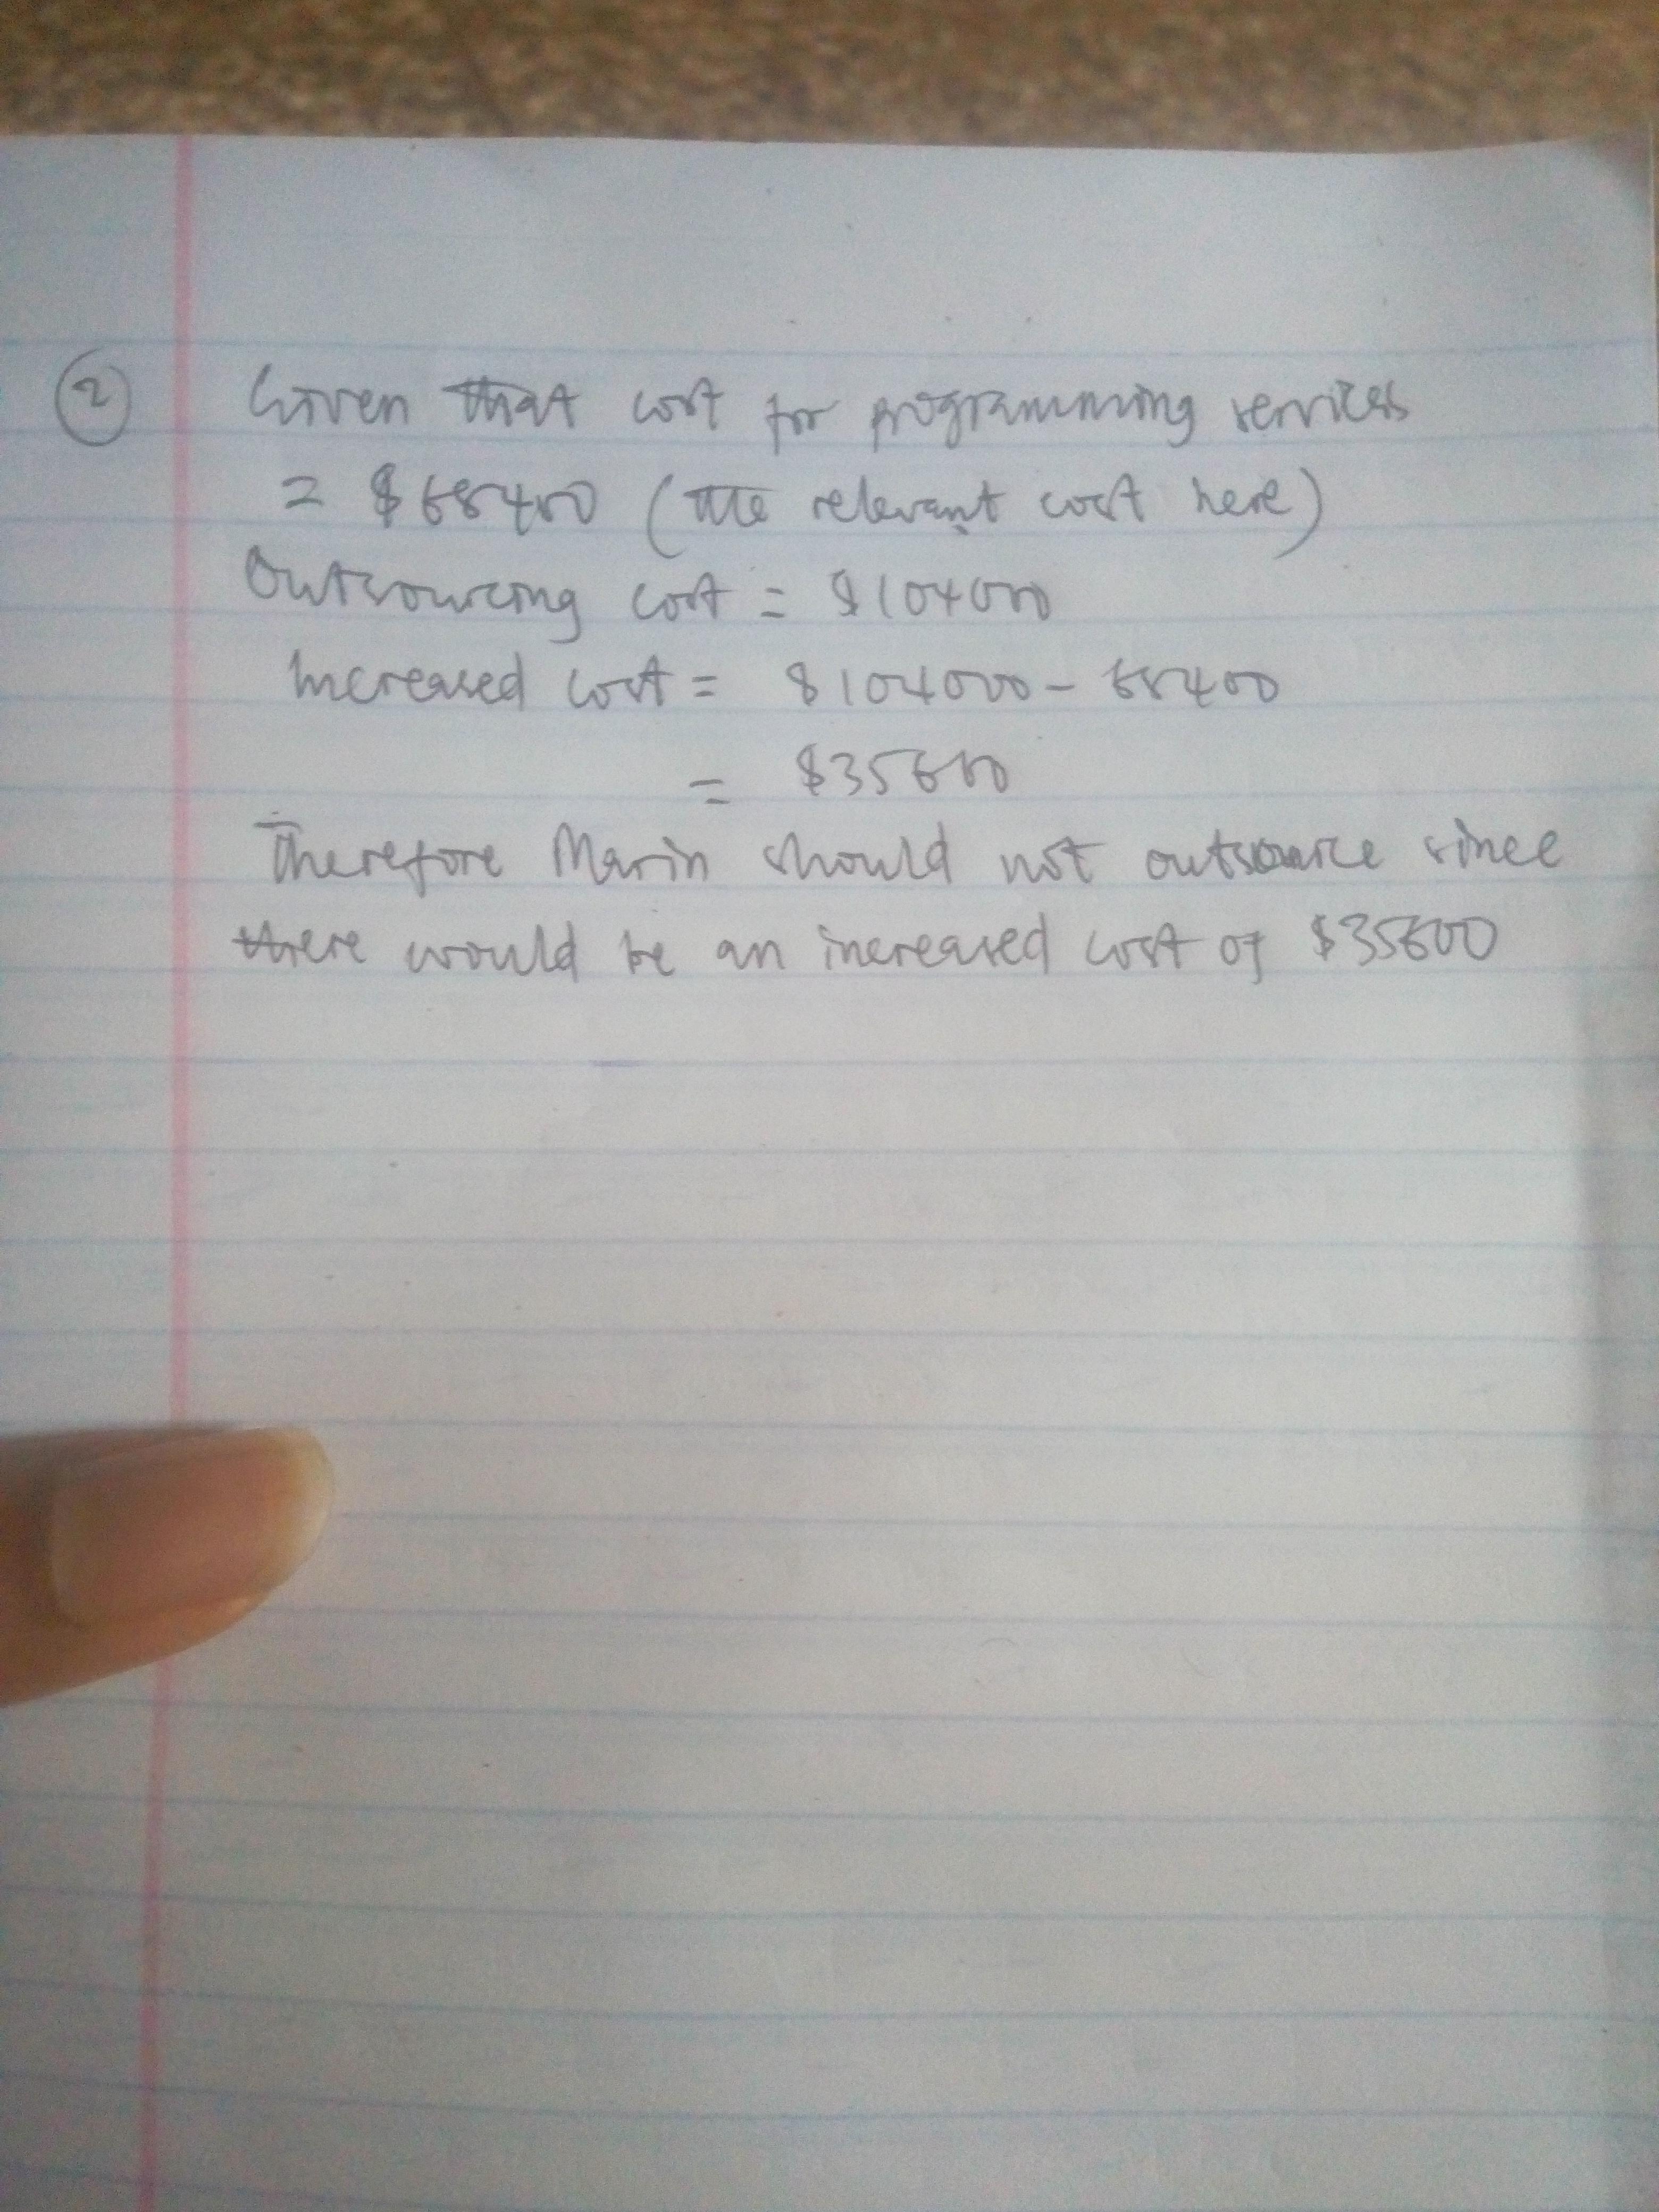 ② Given that cost for programming services
= $68400 (the relevant cost here)
Outsourcing cost = $104000
Increased cost = $104000 - 68400
= $35600
Therefore Marin should not outsource since
there would be an increased cost of $35600